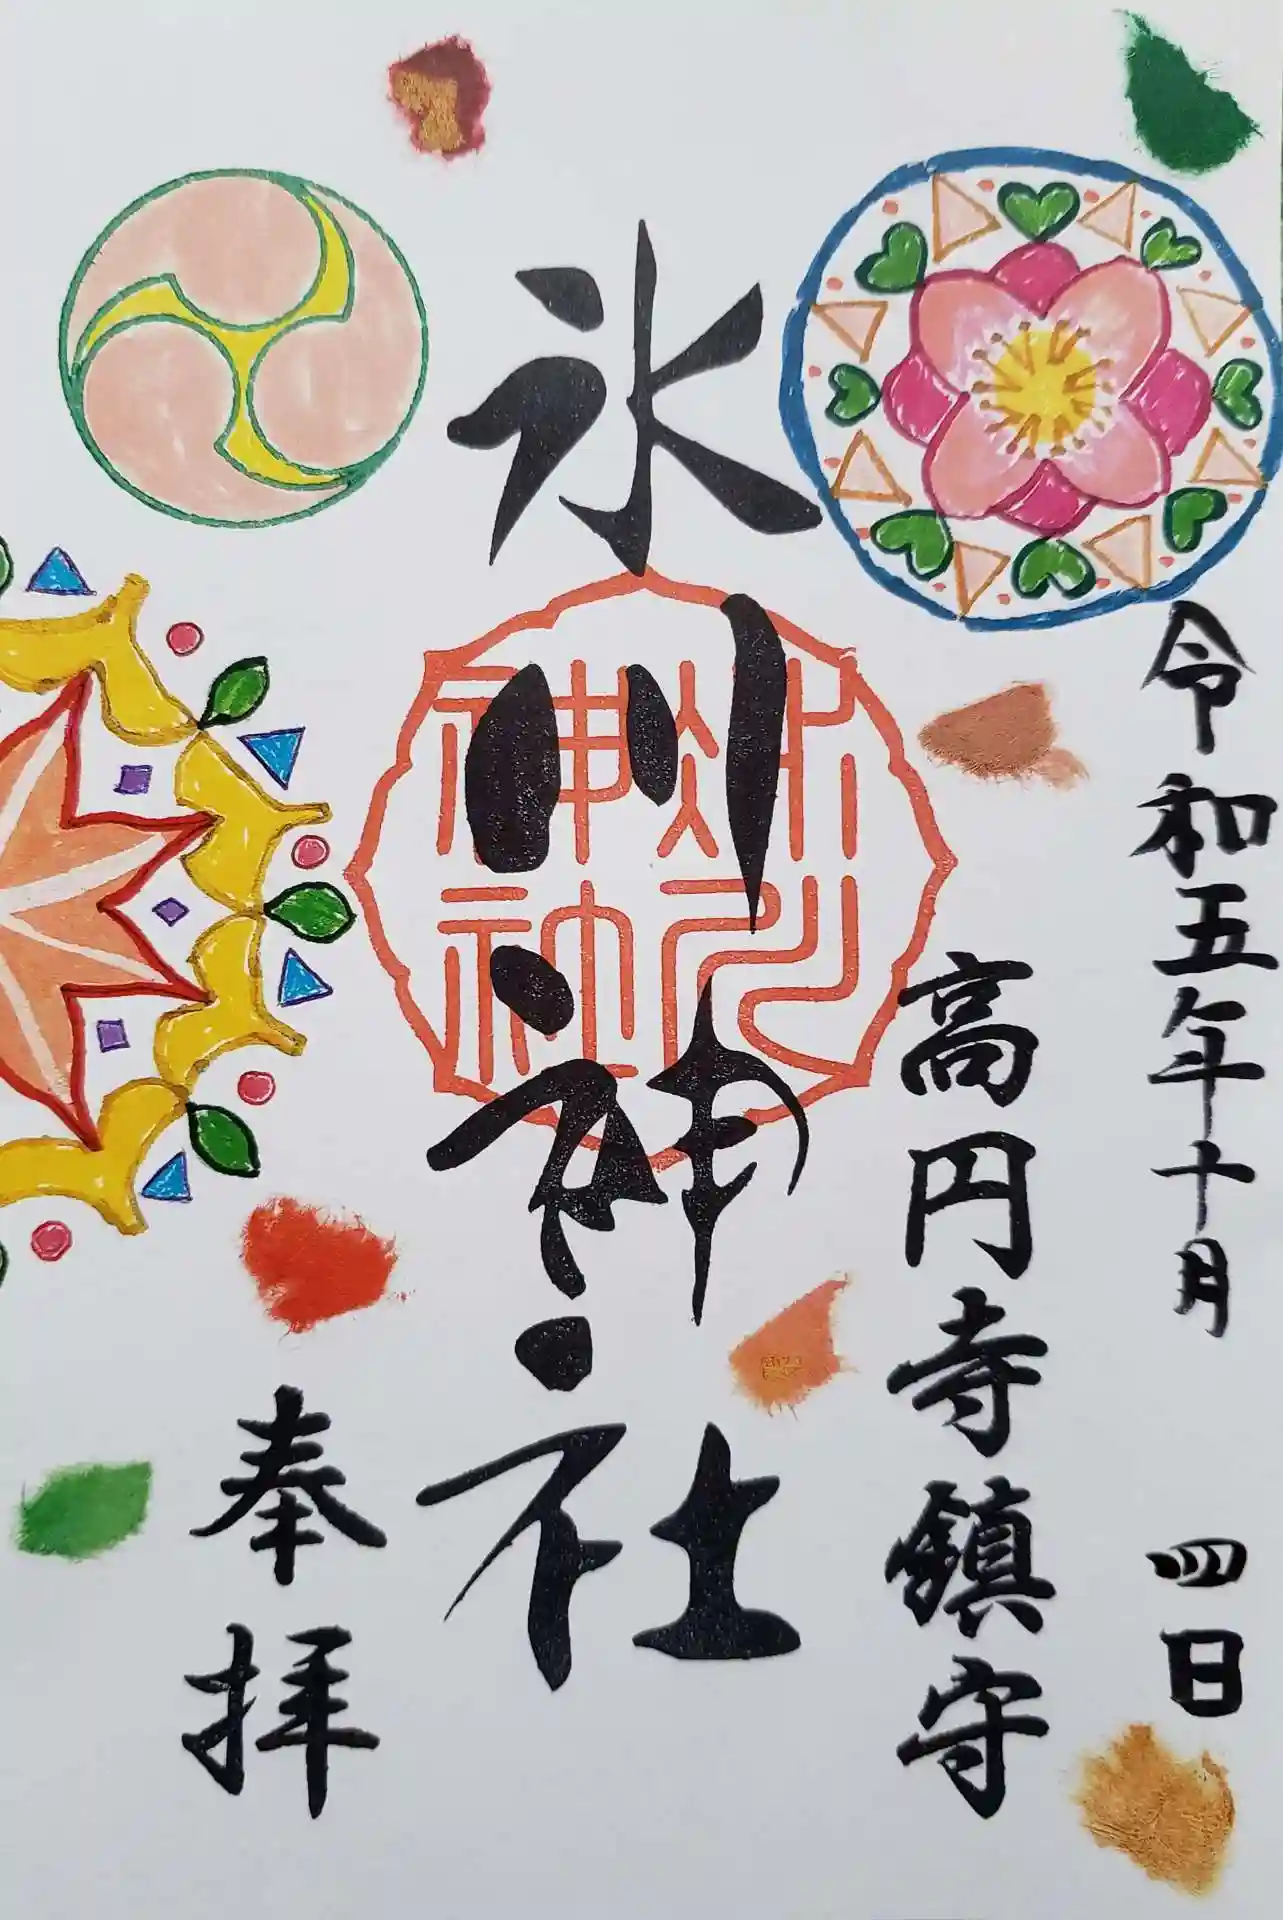 令和五年十月 四日
高円寺鎮守
氷川神社
氷川神社
神社
奉拝